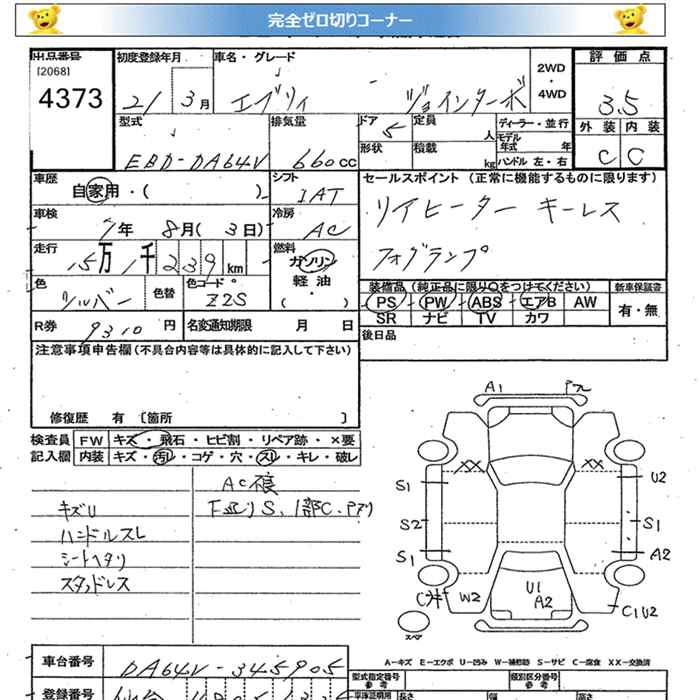 完全ゼロ切りコーナー
出品番号 初度登録年月 車名・グレード 評価点
[2068]
4373 21 3月 エブリィ ジョインターボ 2WD・4WD 3.5
型式 排気量 ドア 5 定員 人 ディーラー・並行 外装 内装
モデル年式 年
EBD-DA64V 660cc 形状 積載 kg ハンドル 左・右 C C
車歴 自家用・( ) シフト IAT セールスポイント (正常に機能するものに限ります)
車検 7年 8月( 3日) 冷房 AC リイヒーター キーレス
走行 15万1千239km 燃料 ガソリン 軽油 ( ・ ) フォグランプ
色 シルバー 色替 色コード Z2S 装備品 (純正品に限り○をつけてください) 新車保証書
PS PW ABS エアB AW 有・無
R券 9310円 名変通知期限 月 日 SR ナビ TV カワ
注意事項申告欄(不具合内容等は具体的に記入して下さい) 後日品
修復歴 有 〔箇所 〕
検査員 FW キズ・飛石・ヒビ割・リペア跡・×要
記入欄 内装 キズ・汚レ・コゲ・穴・スリ・キレ・破レ
キズU
ハンドルスレ
シートヘタリ
スタッドレス
A1
XX XX
S1 U2
S2 S1
S1 A2
W2 U1 A2 C1 U2
スペア
A-キズ E-エクボ U-凹み W-補修跡 S-サビ C-腐食 XX-交換済
車台番号 DA64V-345905 型式指定番号 参考 類別区分番号 参考
登録番号 長さ 幅 高さ